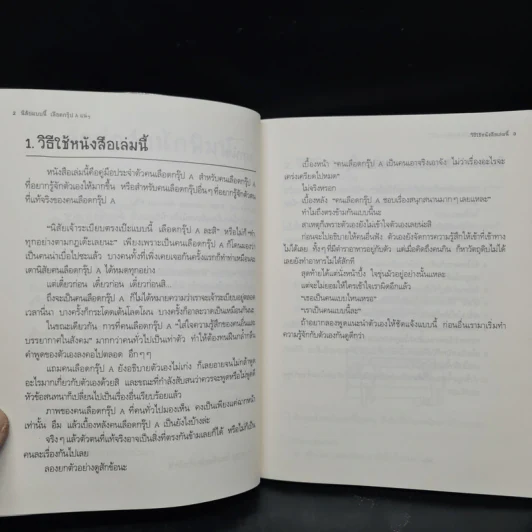 2 นิสัยแบบนี้ เลือดกรุ๊ป A แน่ๆ
1. วิธีใช้หนังสือเล่มนี้
หนังสือเล่มนี้คือคู่มือประจำตัวคนเลือดกรุ๊ป A สำหรับคนเลือดกรุ๊ป A
ที่อยากรู้จักตัวเองให้มากขึ้น หรือสำหรับคนเลือดกรุ๊ปอื่นๆ ที่อยากรู้จักตัวตน
ที่แท้จริงของคนเลือดกรุ๊ป A
"นิสัยเจ้าระเบียบตรงเป๊งแบบนี้ เลือดกรุ๊ป A ละสิ" หรือไม่ก็ "ทำ
ทุกอย่างตามกฎเด๊ะเลยนะ" เพียงเพราะเป็นคนเลือดกรุ๊ป A ก็โดนมองว่า
เป็นคนน่าเบื่อไปซะแล้ว บางคนทั้งที่เพิ่งเคยเจอกันครั้งแรกก็ทำท่าเหมือนจะ
เดานิสัยคนเลือดกรุ๊ป A ได้หมดทุกอย่าง
แต่เดี๋ยวก่อน เดี๋ยวก่อน เดี๋ยวก่อนสิ...
ถึงจะเป็นคนเลือดกรุ๊ป A ก็ไม่ได้หมายความว่าเราจะเจ้าระเบียบอยู่ตลอด
เวลานี่นา บางครั้งก็กระโดดเต้นโลดโผน บางครั้งก็อาละวาดเป็นเหมือนกันนะ
ในขณะเดียวกัน การที่คนเลือดกรุ๊ป A "ใส่ใจความรู้สึกของคนอื่นและ
บรรยากาศในสังคม" มากกว่าคนทั่วไปเป็นเท่าตัว ทำให้ต้องทนฝืนกล้ำกลืน
คำพูดของตัวเองลงคอไปตลอด อึกๆๆ
แถมคนเลือดกรุ๊ป A ยังอธิบายตัวเองไม่เก่ง ก็เลยอายจนไม่กล้าพูด
อะไรมากเกี่ยวกับตัวเองด้วยสิ และขณะที่กำลังสับสนว่าควรจะพูดหรือไม่พูดดี
หัวข้อสนทนาก็เปลี่ยนไปเป็นเรื่องอื่นเรียบร้อยแล้ว
ภาพของคนเลือดกรุ๊ป A ที่คนทั่วไปมองเห็น คงเป็นเพียงแค่ฉากหน้า
เท่านั้น อืม แล้วเบื้องหลังคนเลือดกรุ๊ป A เป็นยังไงบ้างล่ะ
จริงๆ แล้วตัวตนที่แท้จริงอาจเป็นสิ่งที่ตรงกันข้ามเลยก็ได้ หรือไม่ก็เป็น
คนละเรื่องกันไปเลย
ลองยกตัวอย่างดูสักข้อนะ
วิธีใช้หนังสือเล่มนี้ 3
เบื้องหน้า "คนเลือดกรุ๊ป A เป็นคนเอาจริงเอาจัง ไม่ว่าเรื่องอะไรจะ
เคร่งเครียดไปหมด"
ไม่จริงหรอก
เบื้องหลัง "คนเลือดกรุ๊ป A ชอบเรื่องสนุกสนานมากๆ เลยแหละ"
ทำไมถึงตรงข้ามกันแบบนี้นะ
สาเหตุก็เพราะตัวเองยังไม่เข้าใจตัวเองเลยน่ะสิ
ก่อนจะไปอธิบายให้คนอื่นฟัง ตัวเองยังจัดการความรู้สึกให้เข้าที่เข้าทาง
ไม่ได้เลย ทั้งๆ ที่มีตำราอาหารอยู่กับตัว แต่เมื่อคิดถึงคนกิน ก็หาวัตถุดิบไม่ได้
เลยยังทำอาหารไม่ได้สักที
สุดท้ายได้แต่นั่งหน้าบึ้ง ใจขุ่นมัวอยู่อย่างนั้นแหละ
แต่จะไม่ยอมให้ใครเข้าใจเราผิดอีกแล้ว
"เธอเป็นคนแบบไหนเหรอ"
"เราเป็นคนแบบนี้ละ"
ถ้าอยากลองพูดแนะนำตัวเองให้ชัดแจ้งแบบนี้ ก่อนอื่นเรามาเริ่มทำ
ความรู้จักกับตัวเองกันดูดีกว่า